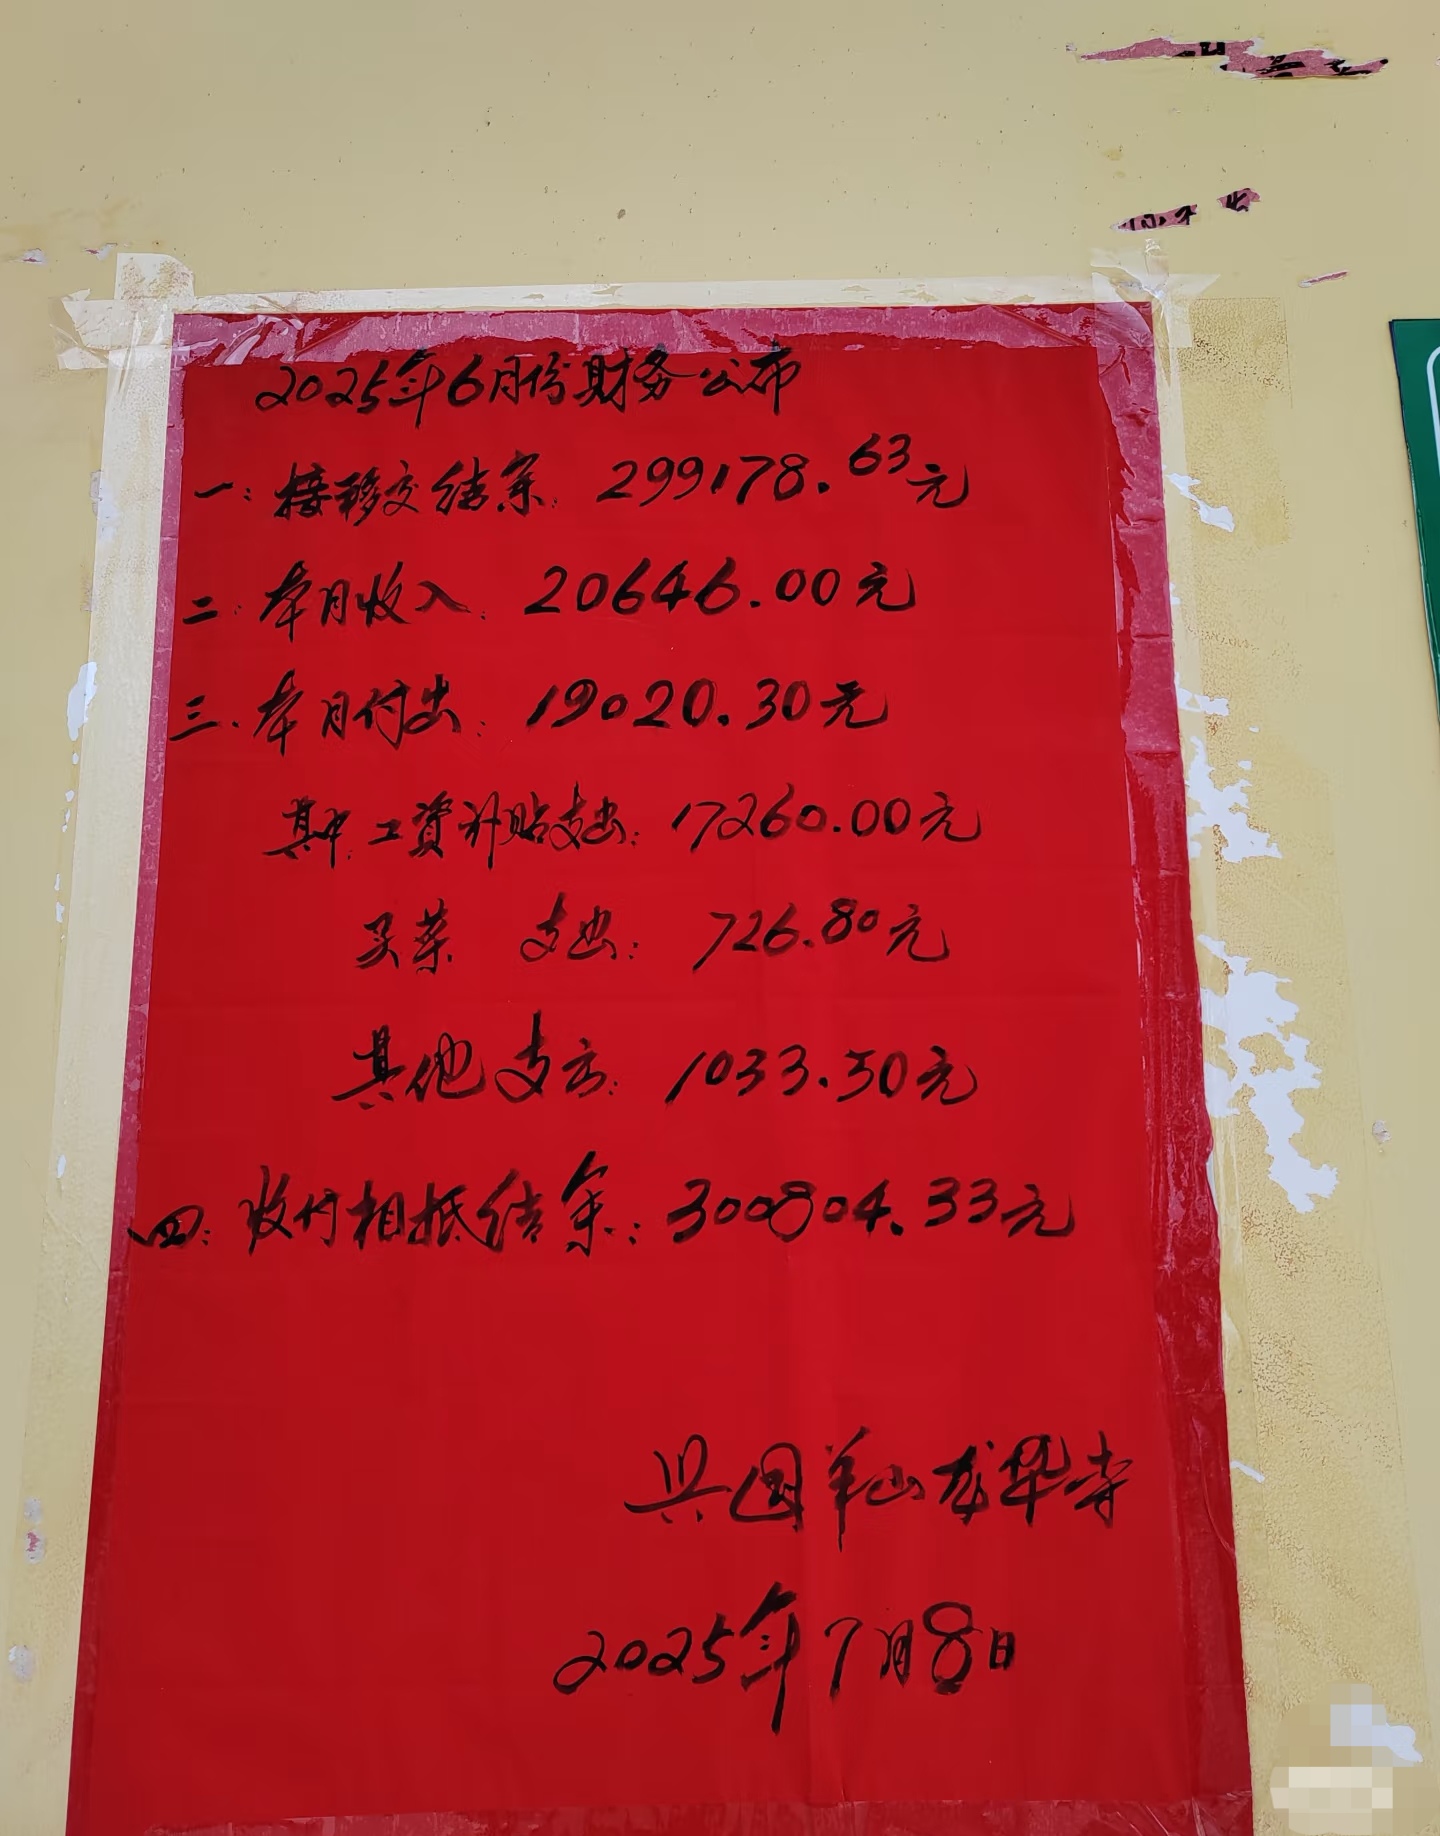 2025年6月份财务公布
一：接移交结余：299178.63元
二：本月收入：20646.00元
三、本月付出：19020.30元
其中：工資补贴支出：17260.00元
买菜 支出：726.80元
其他支出：1033.50元
四：收付相抵结余：300804.33元
兴国羊山龙华寺
2025年7月8日